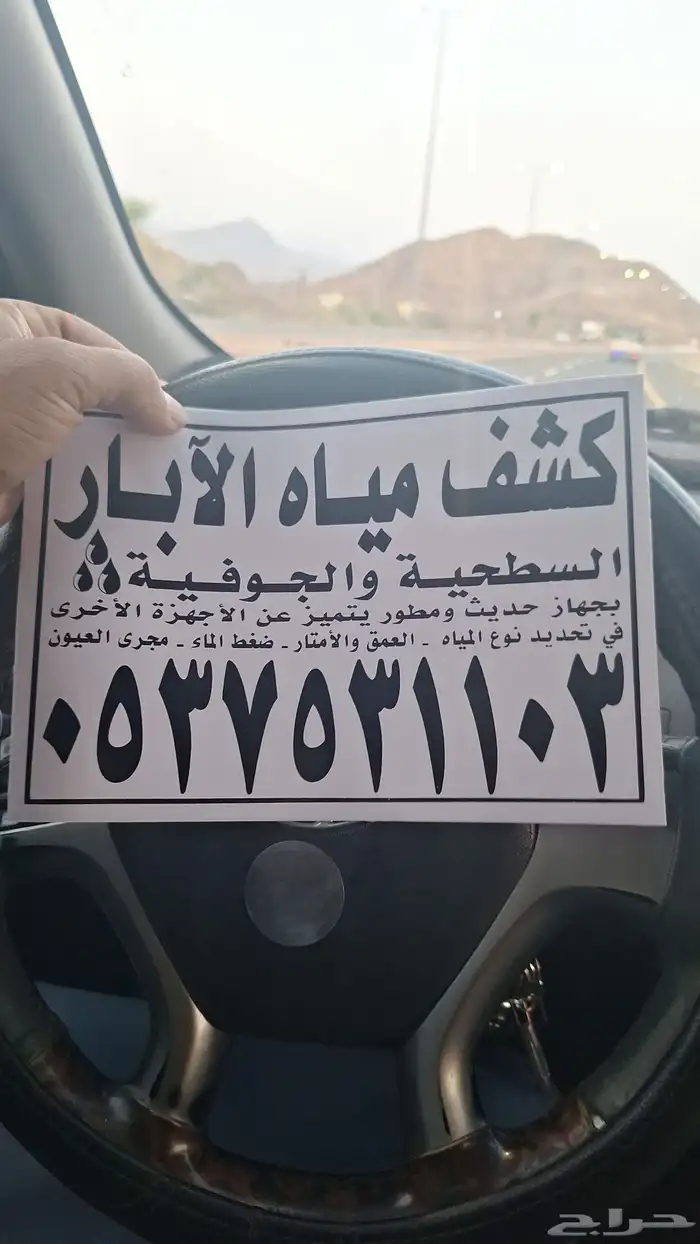 كشف مياه الآبار
السطحية والجوفية
بجهاز حديث ومطور يتميز عن الأجهزة الأخرى
في تحديد نوع المياه - العمق والأمتار - ضغط الماء - مجرى العيون
٠٥٣٧٥٣١١٠٣
حراج